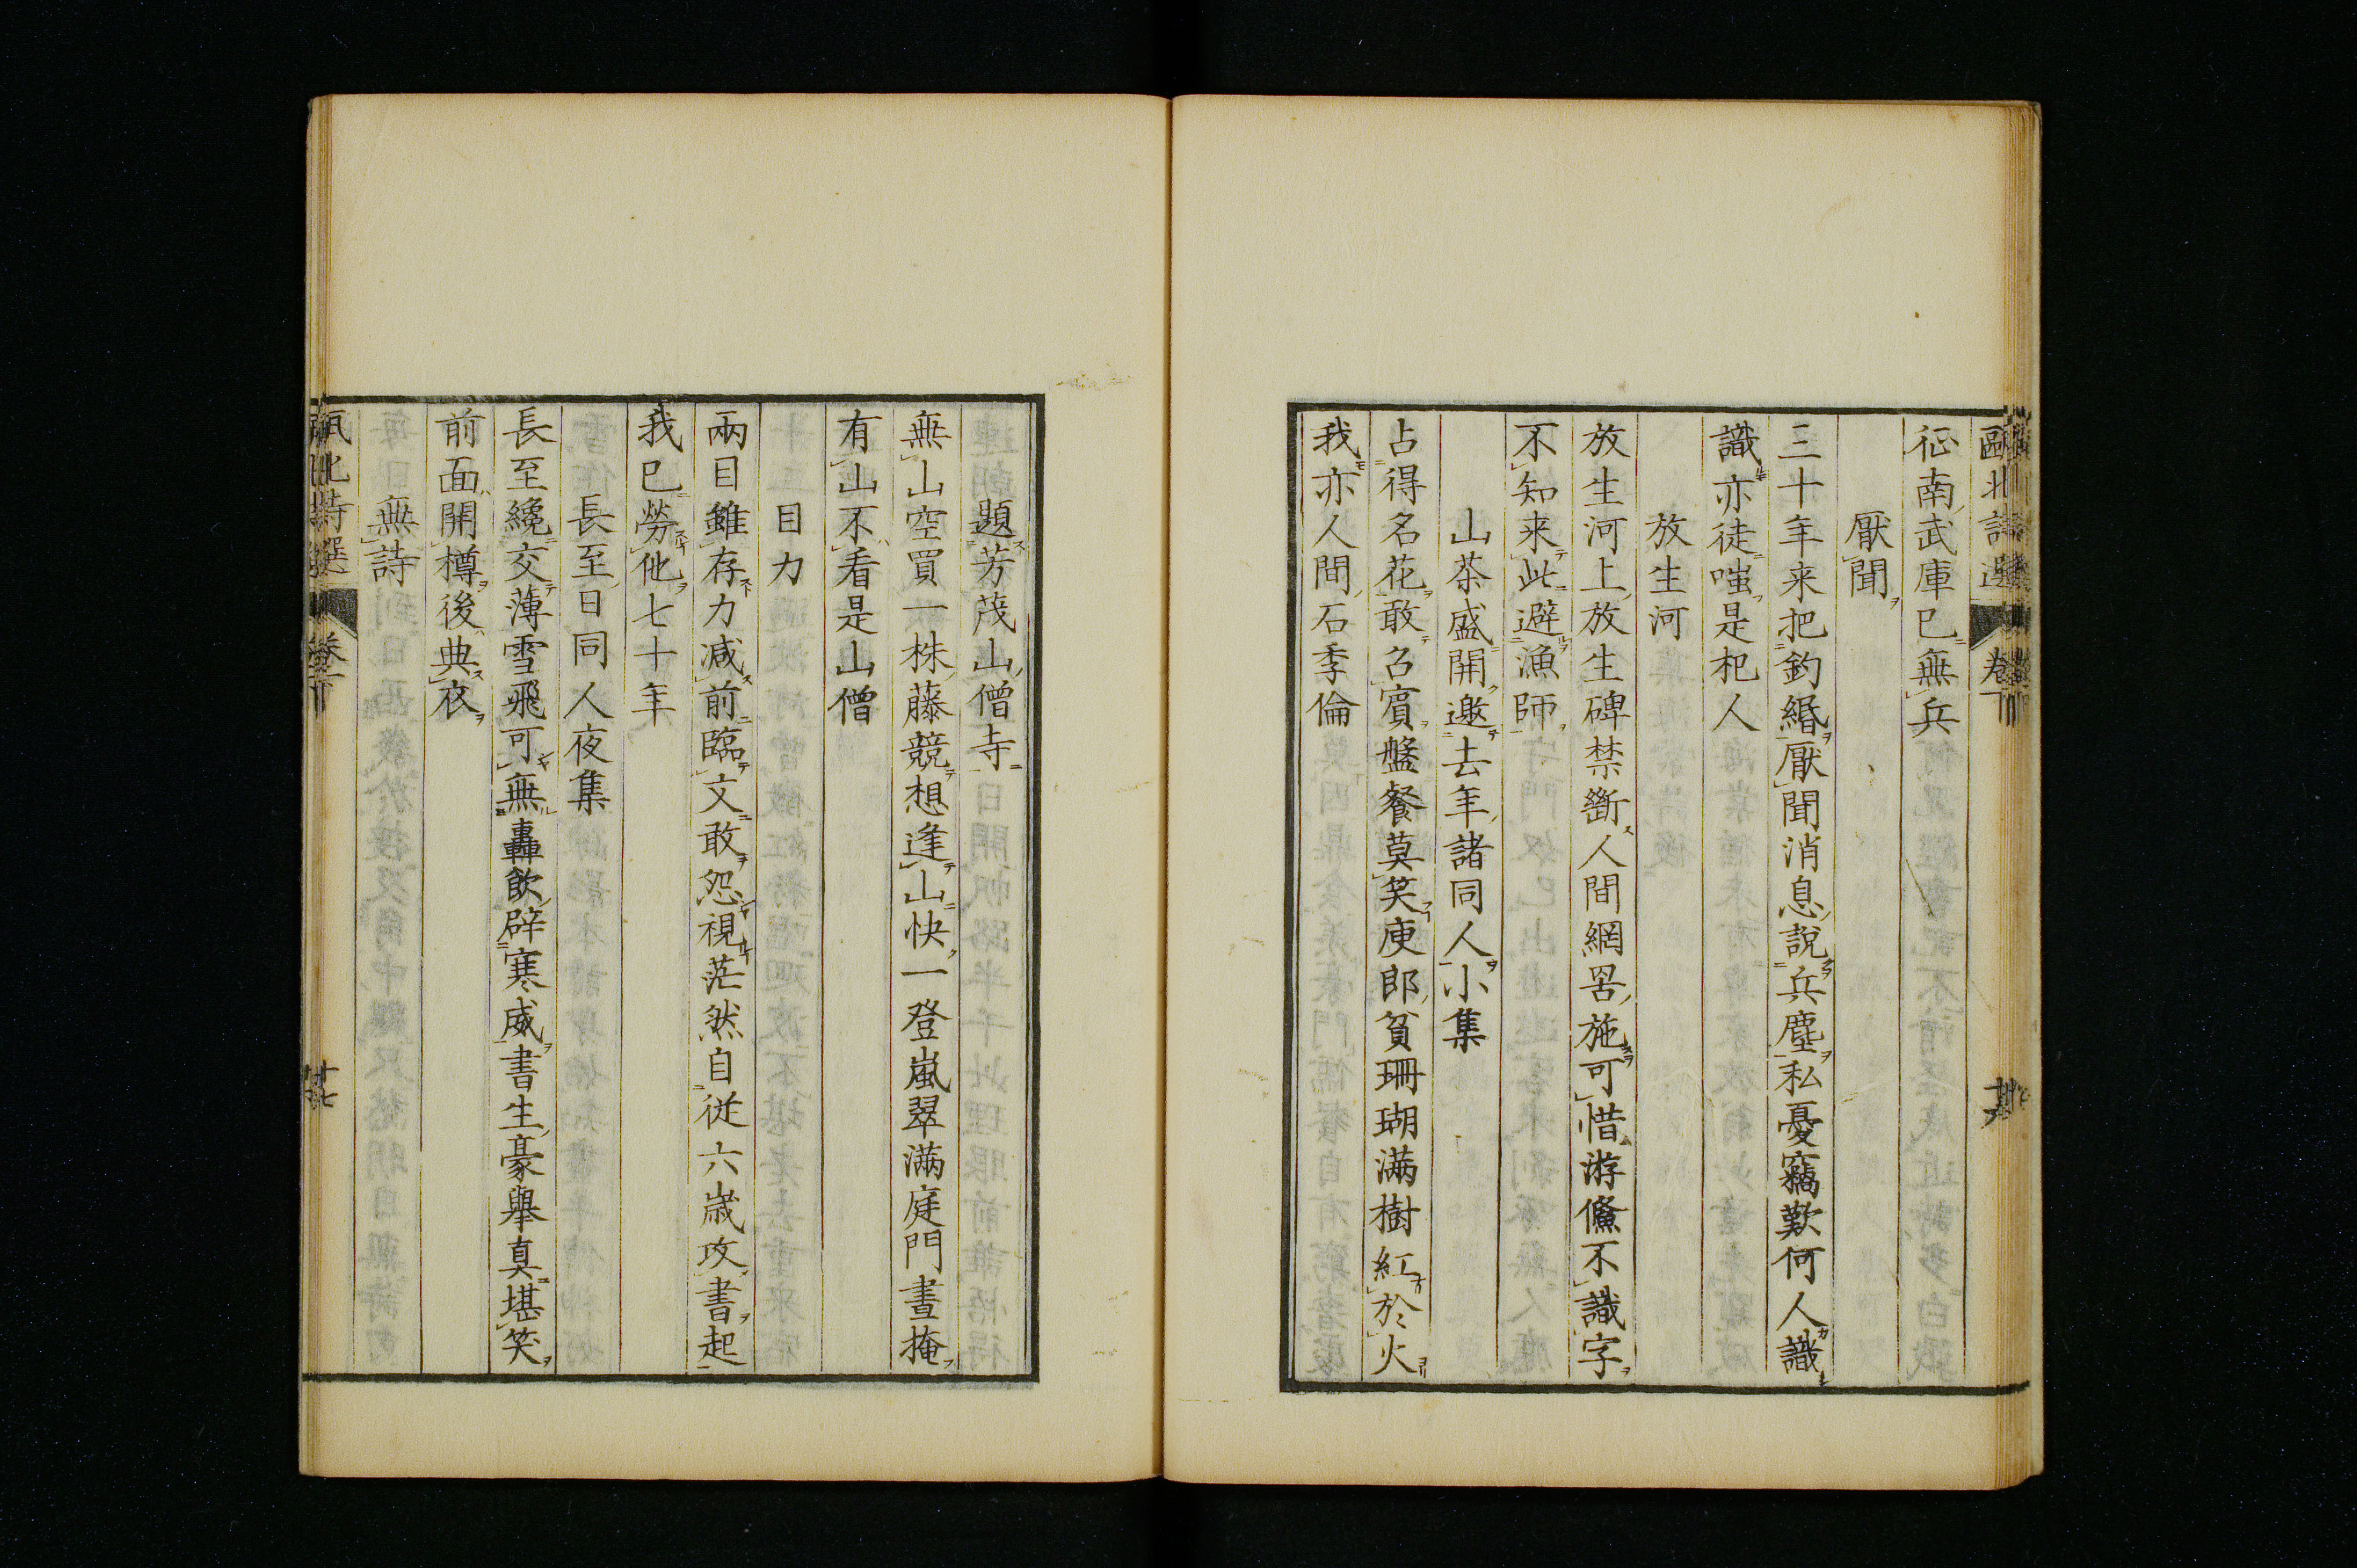 征南武庫已無兵
厭聞
三十年来把釣緡厭聞消息説兵塵私憂竊歎何人識
識亦徒嗤是杞人
放生河
放生河上放生碑禁斷人間網罟施可惜游鯈不識字
不知来此避漁師
山茶盛開邀去年諸同人小集
占得名花敢召賓盤餐莫笑庾郎貧珊瑚滿樹紅於火
我亦人間石季倫
題芳茂山僧寺
無山空買一株藤競想逢山快一登嵐翠滿庭門晝掩
有山不看是山僧
目力
兩目雖存力减前臨文敢怨視茫然自從六歲攻書起
我已勞他七十年
長至日同人夜集
長至纔交薄雪飛可無轟飲辟寒威書生豪舉真堪笑
前面開樽後典衣
無詩
甌北詩選 卷下